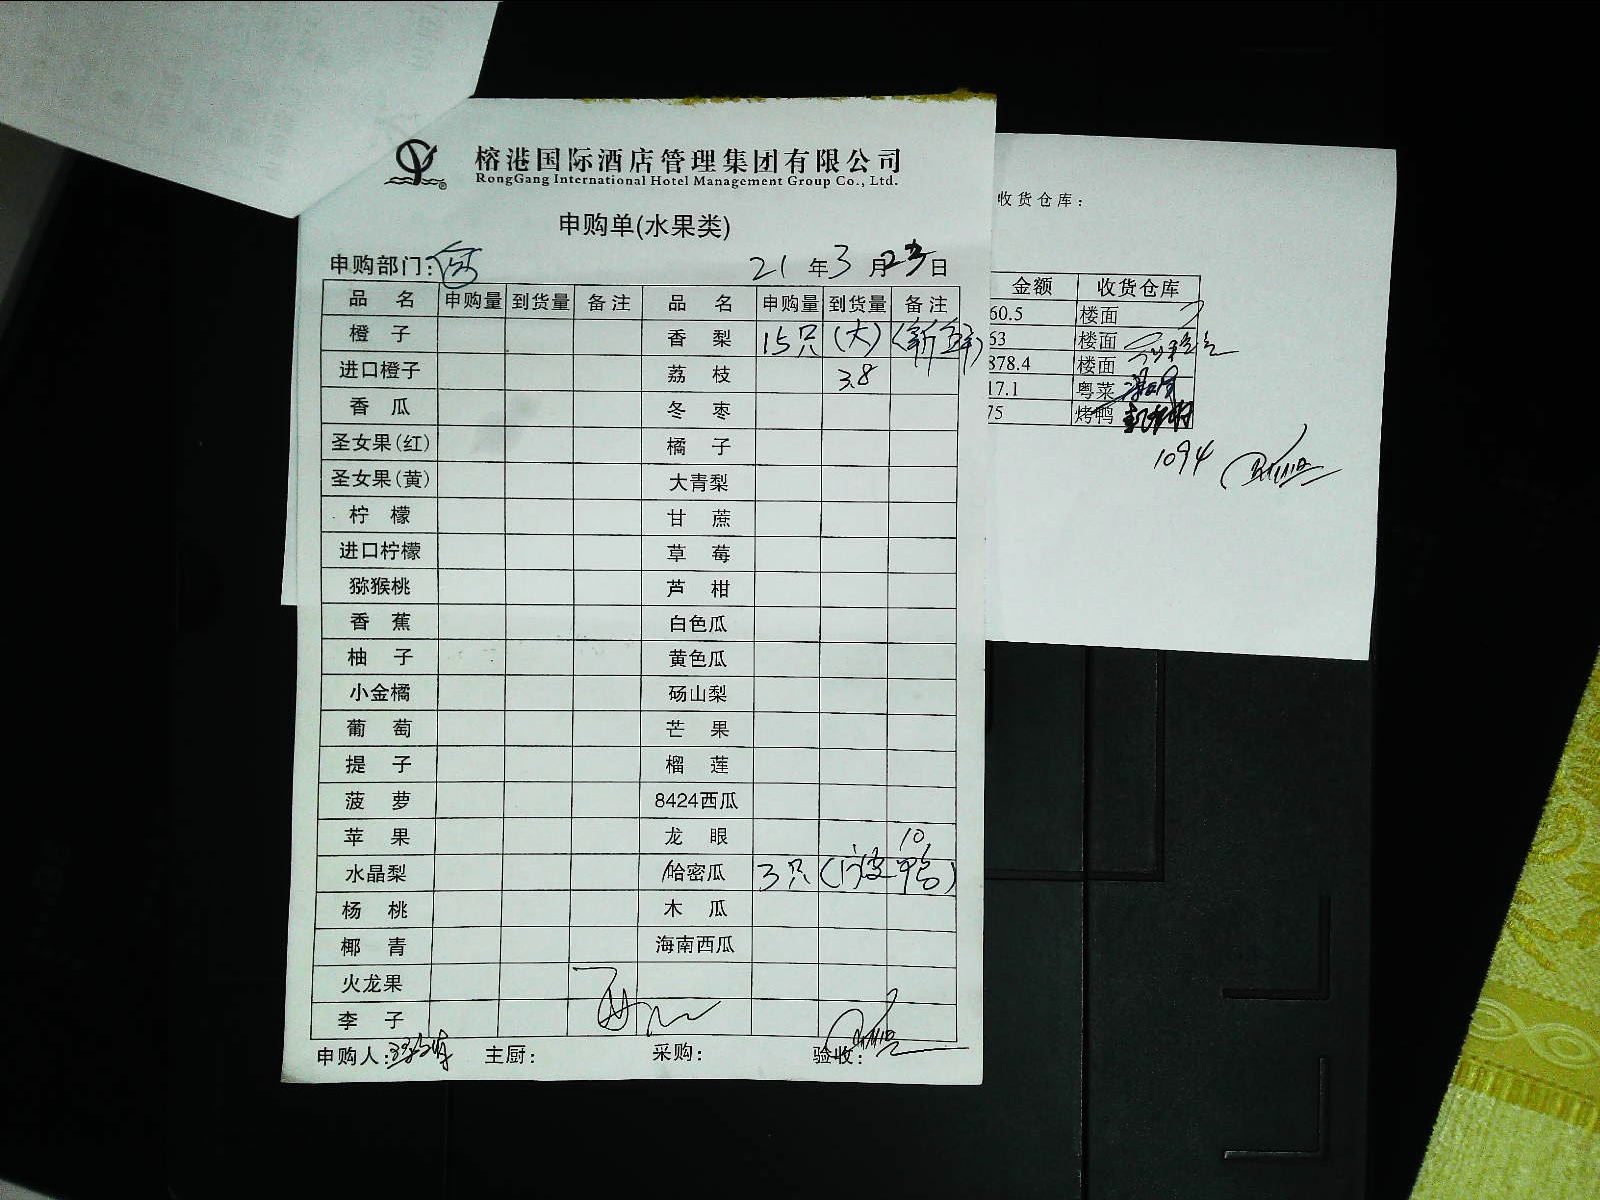 榕港国际酒店管理集团有限公司
RongGang International Hotel Management Group Co., Ltd.
申购单(水果类)
申购部门:
21年3月23日
品名 申购量 到货量 备注 品名 申购量 到货量 备注
橙子 香梨 15只 (大) (新鲜)
进口橙子 荔枝 3.8
香瓜 冬枣
圣女果(红) 橘子
圣女果(黄) 大青梨
柠檬 甘蔗
进口柠檬 草莓
猕猴桃 芦柑
香蕉 白色瓜
柚子 黄色瓜
小金橘 砀山梨
葡萄 芒果
提子 榴莲
菠萝 8424西瓜
苹果 龙眼 10
水晶梨 哈密瓜 3只
杨桃 木瓜
椰青 海南西瓜
火龙果
李子
申购人: 主厨: 采购: 验收:
收货仓库:
金额 收货仓库
60.5 楼面
63 楼面
878.4 楼面
17.1 粤菜
75 烤鸭
1094